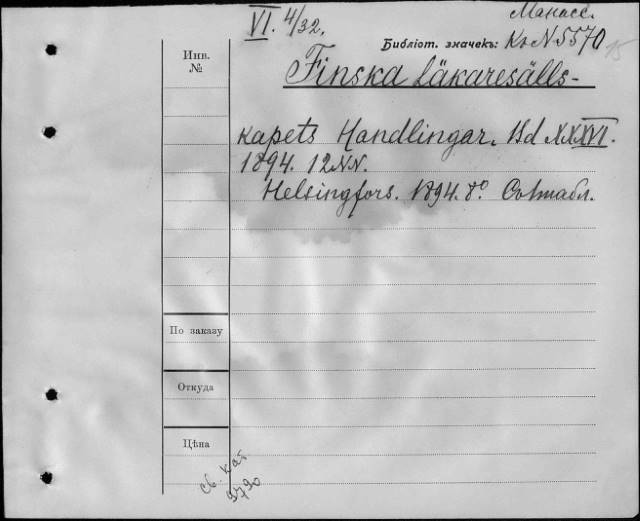 VI. 4/32.
Манасс.
Библiот. значекъ: Кз N 5570
15
Инв.
№
Finska läkaresälls-
kapets Handlingar. Bd XXXVI.
1894. 12 NN.
Helsingfors. 1894. 8° Co 1 табл.
По заказу
Откуда
Цѣна
св. кат.